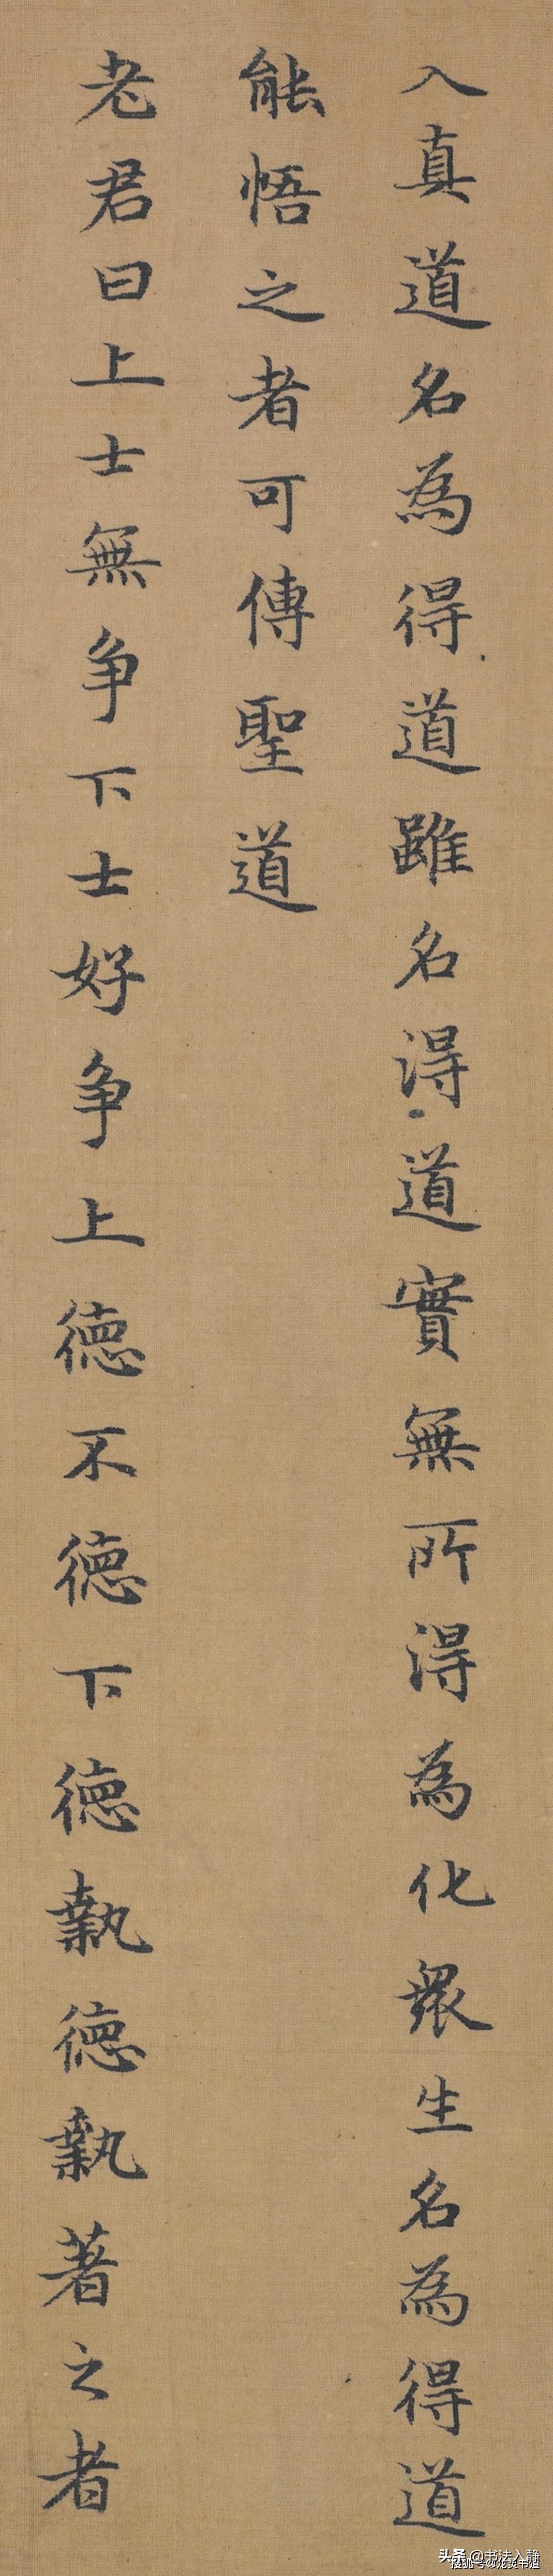 入真道名為得道雖名得道實無所得為化衆生名為得道
能悟之者可傳聖道
老君曰上士無争下士好争上德不德下德執德執著之者
头条@书法入静
搜狐号@龙贤书道